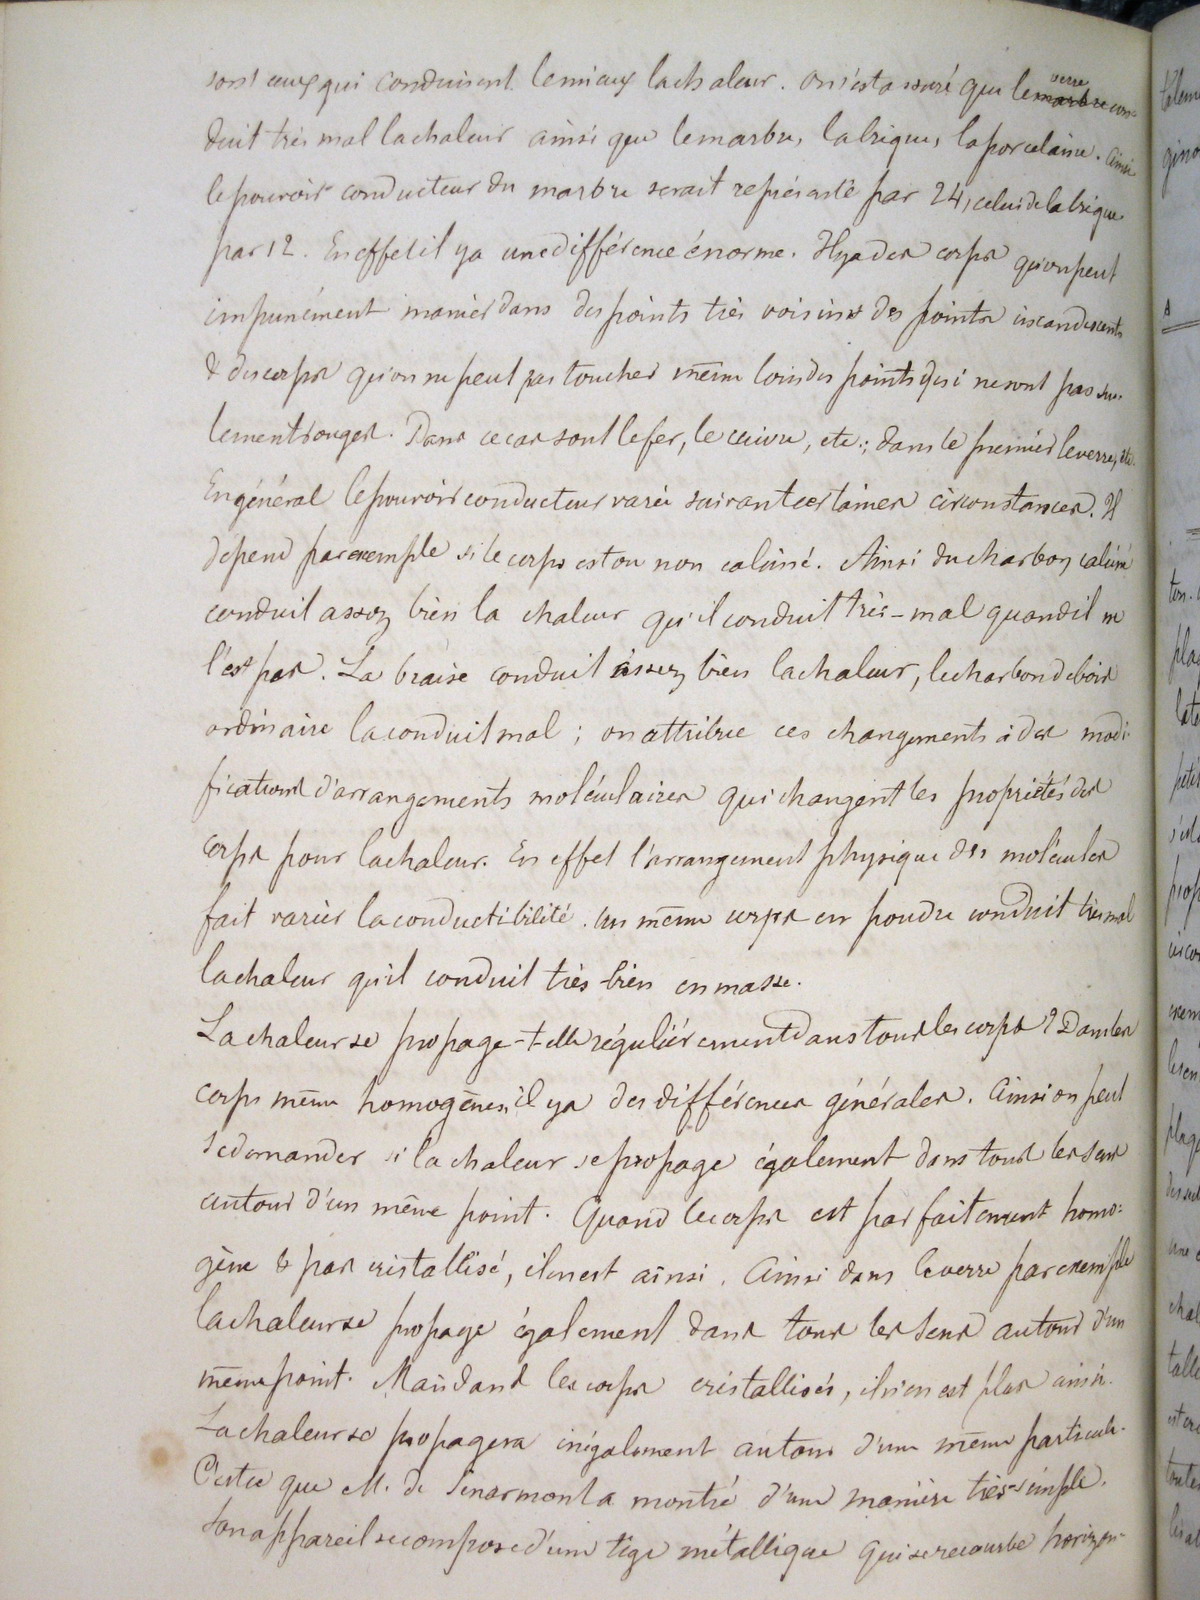 sont ceux qui conduisent le mieux la chaleur. On s'est assuré que le marbre verre con-
duit très mal la chaleur ainsi que le marbre, la brique, la porcelaine. Ainsi
le pouvoir conducteur du marbre serait représenté par 24, celui de la brique
par 12. En effet il y a une différence énorme. Il y a des corps qu'on peut
impunément manier dans des points très voisins des points incandescents
& des corps qu'on ne peut pas toucher même loin des points qui ne sont pas seu-
lement rouges. Dans ce cas sont le fer, le cuivre, etc.; dans le premier le verre, etc.
En général le pouvoir conducteur varie suivant certaines circonstances. Il
dépend par exemple si le corps est ou non calciné. Ainsi du charbon calciné
conduit assez bien la chaleur qu'il conduit très-mal quand il ne
l'est pas. La braise conduit assez bien la chaleur, le charbon de bois
ordinaire la conduit mal; on attribue ces changements à des modi-
fications d'arrangements moléculaires qui changent les propriétés des
corps pour la chaleur. En effet l'arrangement physique des molécules
fait varier la conductibilité. Un même corps en poudre conduit très mal
la chaleur qu'il conduit très-bien en masse.
La chaleur se propage-t-elle régulièrement dans tous les corps? Dans les
corps même homogènes, il y a des différences générales. Ainsi on peut
se demander si la chaleur se propage également dans tous les sens
autour d'un même point. Quand le corps est parfaitement homo-
gène & pas cristallisé, il en est ainsi. Ainsi dans le verre par exemple
la chaleur se propage également dans tous les sens autour d'un
même point. Mais dans les corps cristallisés, il n'en est plus ainsi.
La chaleur se propagera inégalement autour d'une même particule.
C'est ce que M. de Senarmont a montré d'une manière très-simple.
Son appareil se compose d'une tige métallique qui se recourbe horizon-